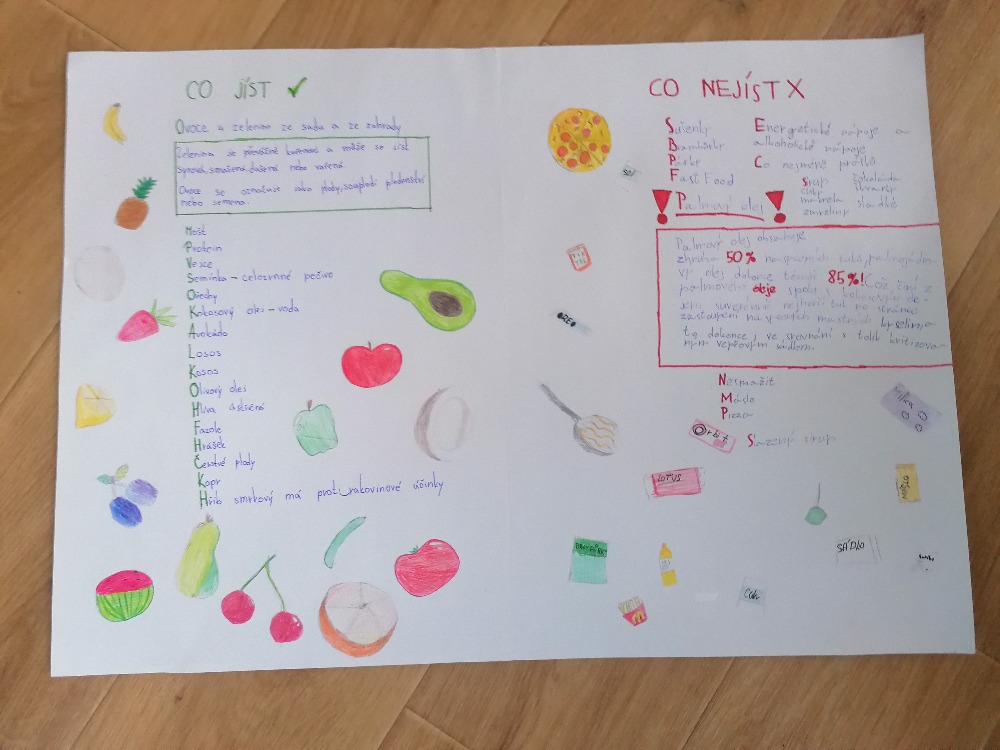 CO JÍST ✓
Ovoce a zelenina ze sadu a ze zahrady
Zelenina se převážně a může se jíst
syrová, smažená, dušená nebo vařená.
Ovoce se označuje jako plody, souplodí plodenství
nebo semena.
Mošt
Protein
Vejce
Semínka - celozrnné pečivo
Ořechy
Kokosový olej - voda
Avokádo
Losos
Kokos
Olivový olej
Hlíva ústřičná
Fazole
Hrášek
Čerstvé plody
Kopr
Hřib smrkový má proti rakovinové účinky
CO NEJÍST X
Sušenky
Brambůrky
Párky
Fast Food
Energetické nápoje a
alkoholické nápoje
Co nejméně
Sirup
cukr
zmrzliny
čokoláda
sladké
! Palmový olej !
Palmový olej obsahuje
zhruba 50% nasycených tuků,
olej dokonce téměř 85%! Což činí z
palmového oleje spolu s kokosovým
nejhorší tuk na stránce
zastoupení nasycených mastných kyselin
to dokonce i ve srovnání s tolik kritizova-
ným vepřovým sádlem.
Nesmažit
Máslo
Pizza
Slazený sirup
OREO
Orbit
LOTUS
Milka
MÁSLO
SÁDLO
Cukr